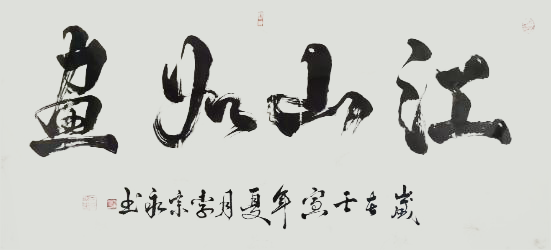 江山如画
歲在壬寅年夏月李宗永书